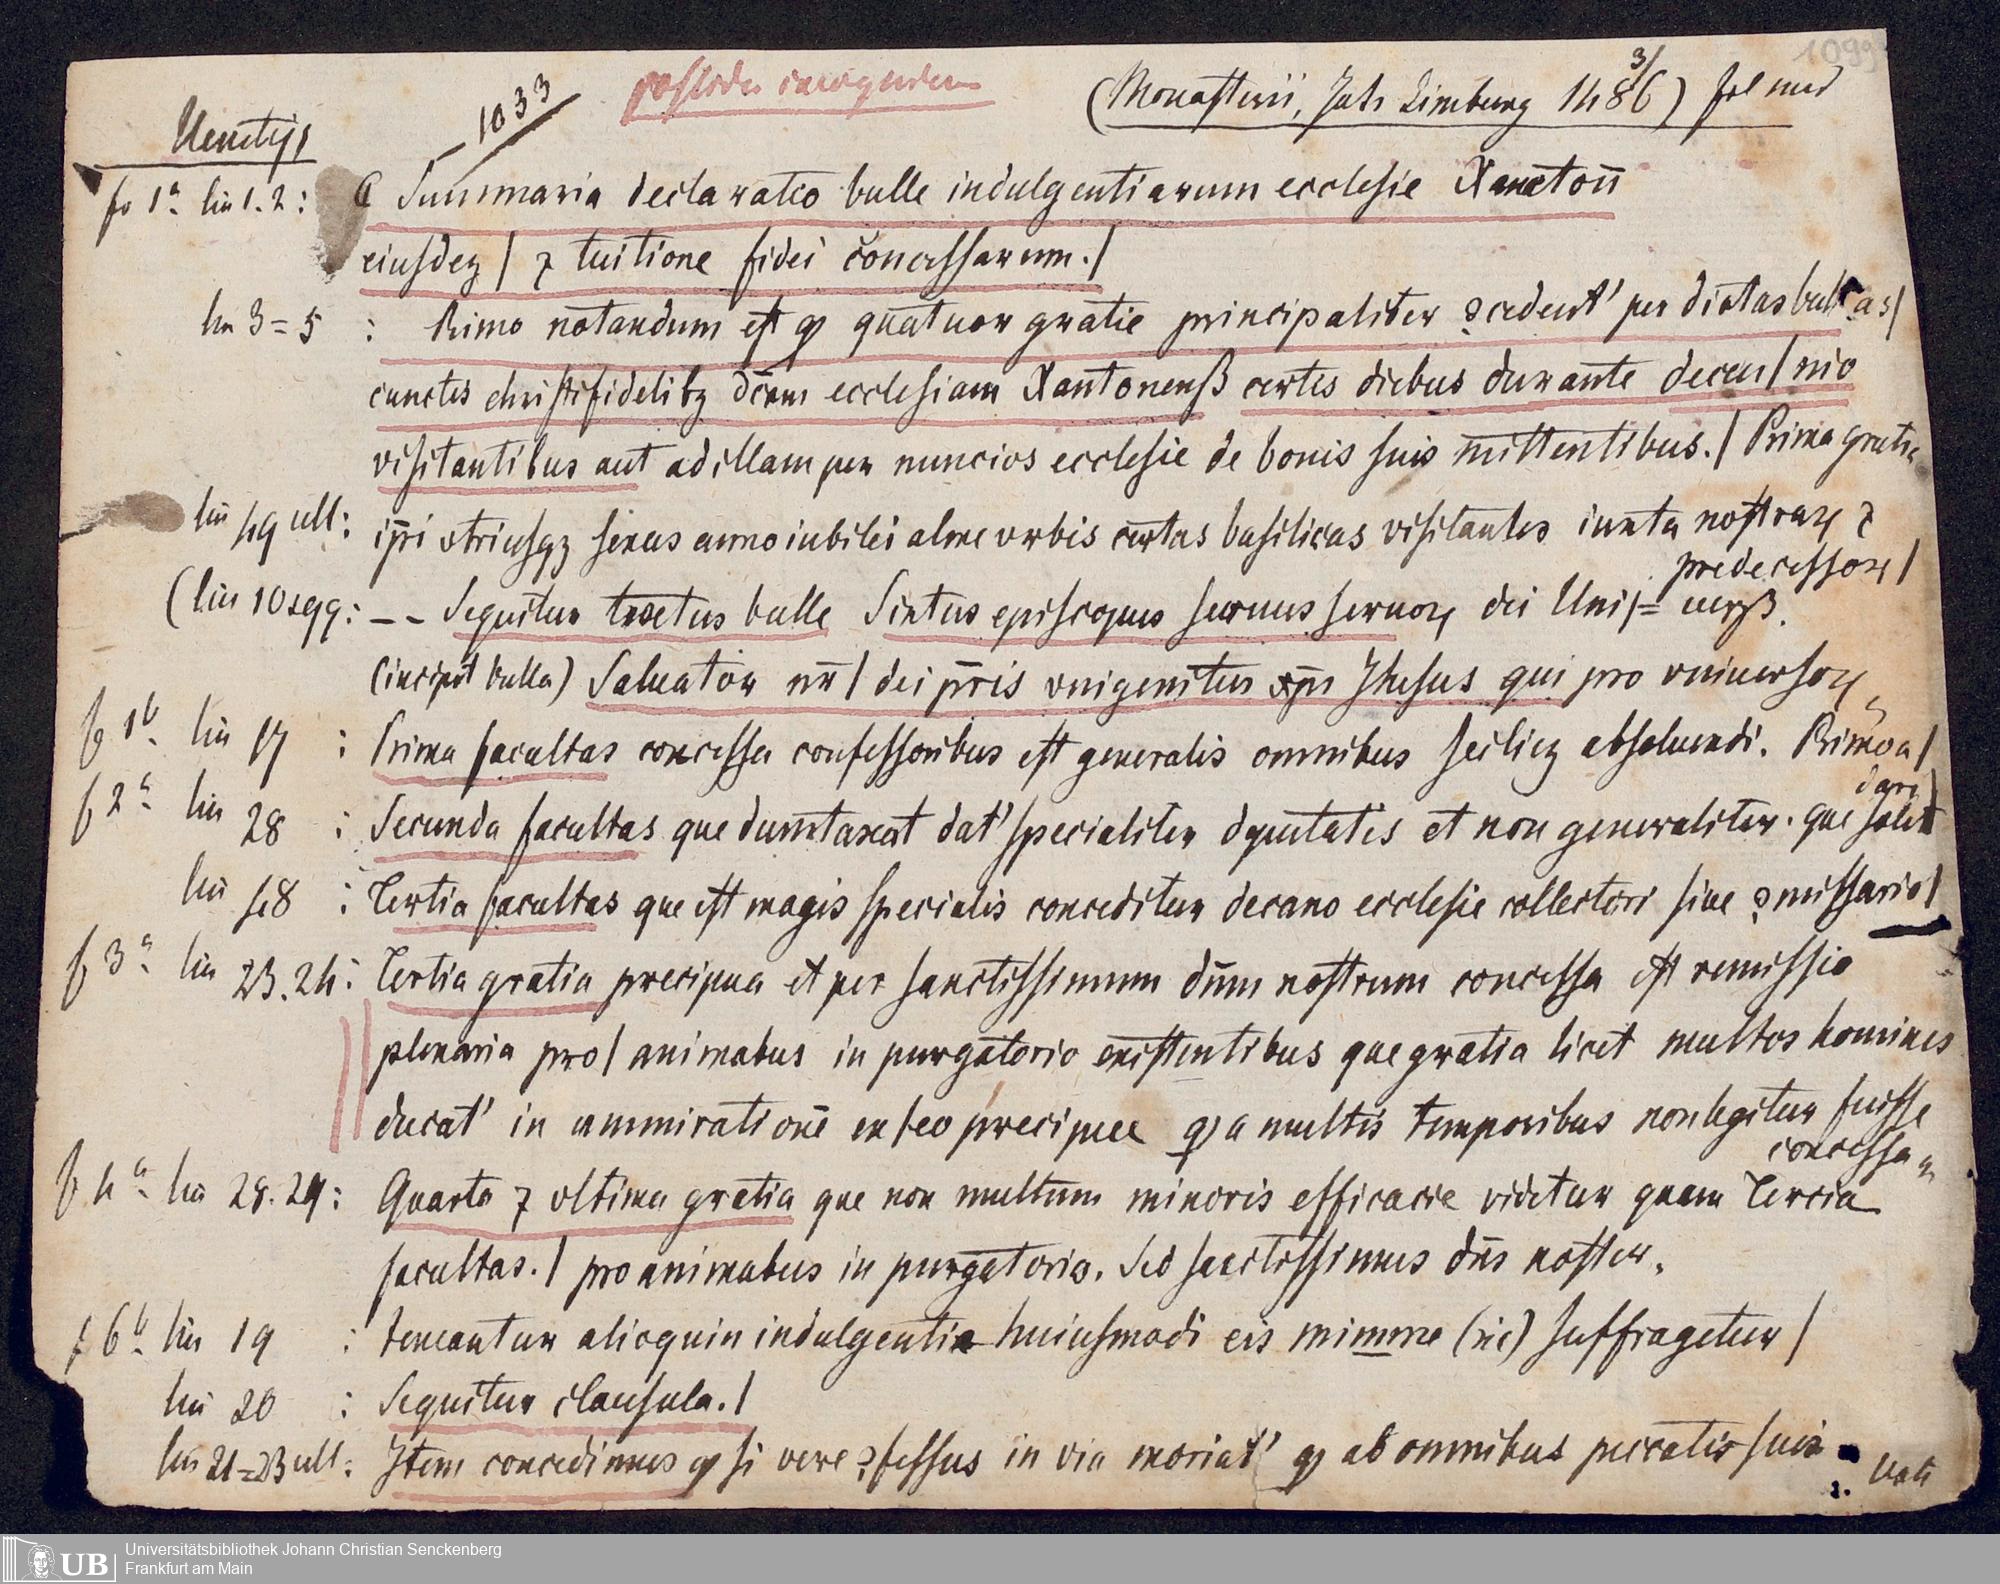 1099
Uenetijs
1033
(Monasterii, Joh Limburg 1486) fol min
3/
fo 1a lin 1.2: ₡ Summaria declaratio bulle indulgentiarum ecclesie Xanctoñ
eiusdez / ⁊ tuitione fidei concessarum./
lin 3=5 : Rimo notandum est qꝫ quatuor gratie principaliter ꝯcedent' per dictas bullas/
cunctis christifidelibꝫ dc̄am ecclesiam Xantonenß certis diebus durante decen/nio
visitantibus aut ad illam per nuncios ecclesie de bonis suis mittentibus./ Prima gratia
lin 49 ult: ip̄i vtriusqꝫ sexus anno iubilei alme vrbis certas basilicas visitantes iuxta nostraꝝ ⁊
predecessoꝝ/
(lin 10 sqq: -- Sequitur tractus bulle Sixtus episcopus seruus seruoꝝ dei Uni/= uerß.
(incipit bulla) Saluator nr̄/ dei pr̄is vnigenitus xp̄s Jhesus qui pro vniuersoꝝ
f 1b lin 17 : Prima facultas concessa confessoribus est generalis omnibus scilicꝫ absoluendi. Primo a/
f 2a lin 28 : Secunda facultas que dumtaxat dat' specialiter dputatis et non generaliter. que solet
dari/
lin 48 : Tertia facultas que est magis specialis conceditur decano ecclesie collectori siue ꝯmissario/
f 3a lin 23.24: Tertia gratia precipua et per sanctissimum dn̄m nostrum concessa est remissio
plenaria pro/ animabus in purgatorio existentibus que gratia licet multos homines
ducat' in ammirationē ex/eo precipue qꝫ a multis temporibus non legitur fuisse
concessa
f 4a lin 28.29: Quarta ⁊ vltima gratia que non multum minoris efficacie videtur quam Tercia
facultas./ pro animabus in purgatorio. Sed sanctissimus dn̄s noster.
f 6b lin 19 : teneantur alioquin indulgentia huiusmodi eis mimme (sic) suffragetur/
lin 20 : Sequitur clausula./
lin 21=23 ult: Item concedimus qꝫ si vere ꝯfessus in via moriat' qꝫ ab omnibus peccatis suis
Universitätsbibliothek Johann Christian Senckenberg
UB Frankfurt am Main